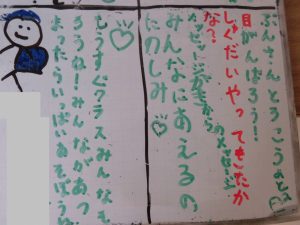 ぶんさんとうこう
目がんばろう!
しゅくだいやってもきたか
な?
からのメッセージ
みんなにあえるの、
たのしみ♡
♡もうすぐクラスみんなそ
ろうね!みんながあつ
まったらいっぱいあそぼうね